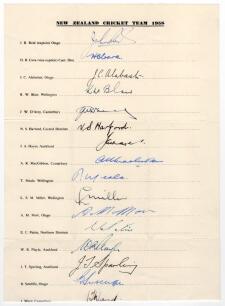 NEW ZEALAND CRICKET TEAM 1958
J. R. Reid (captain) Otago
H. B. Cave (vice-captain) Cent. Dist.
J. C. Alabaster, Otago
J C Alabaster
R. W. Blair, Wellington
R W Blair
J. W. D'Arcy, Canterbury
N. S. Harford, Central Districts
N S Harford
J. A. Hayes, Auckland
A. R. MacGibbon, Canterbury
T. Meale, Wellington
T Meale
L. S. M. Miller, Wellington
L Miller
A. M. Moir, Otago
A M Moir
E. C. Petrie, Northern Districts
W. R. Playle, Auckland
W R Playle
J. T. Sparling, Auckland
J T Sparling
B. Sutcliffe, Otago
J. Ward, Canterbury
J Ward